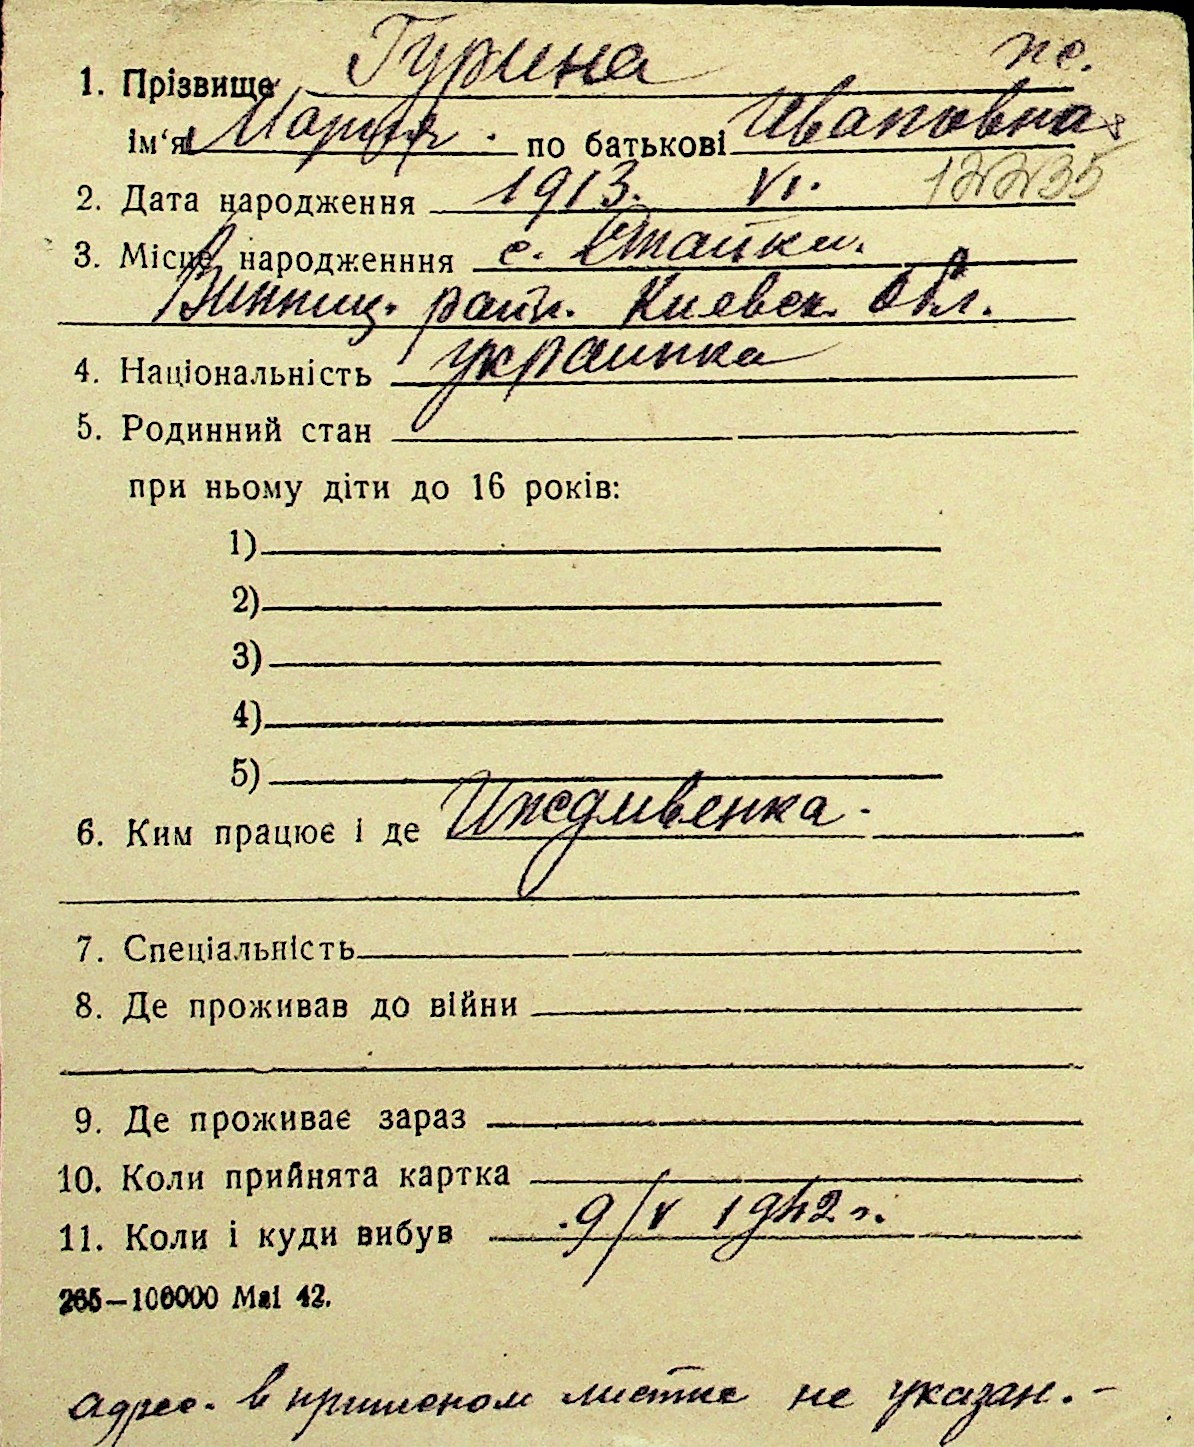 1. Прізвище Гурина же.
ім'я Мария. по батькові Ивановна
2. Дата народження 1913. VI. 12235
3. Місце народженння с. Стайки.
Винниц. район. Киевск. обл.
4. Національність украинка
5. Родинний стан
при ньому діти до 16 років:
1)
2)
3)
4)
5)
6. Ким працює і де Иждивенка.
7. Спеціальність
8. Де проживав до війни
9. Де проживає зараз
10. Коли прийнята картка
11. Коли і куди вибув 9/V 1942 г.
265—100000 Маі 42.
адрес. в листке не указан.-